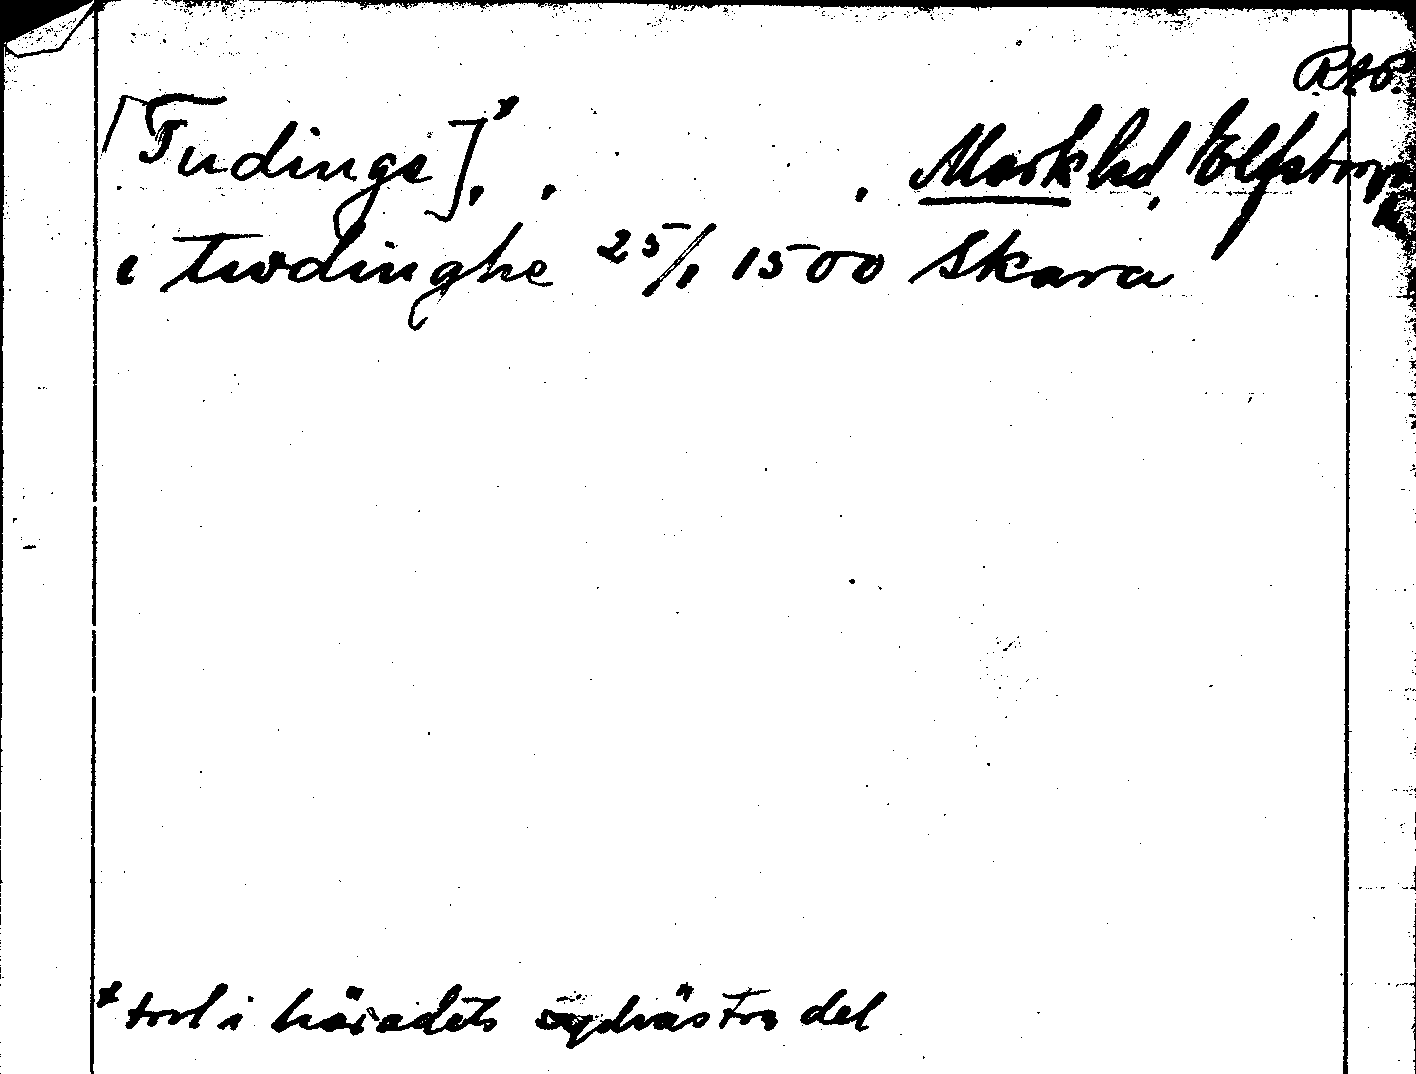 RAP.
[Tudinge]*, , , Marks hd, Elfsborgs l
i twdinghe 25/1 1500 Skara
* trol i häradets sydvästra del